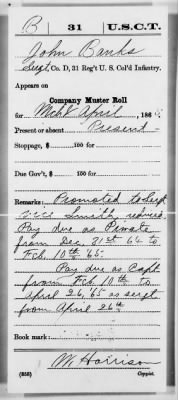 B 31 U.S.C.T.
John Banks
Sergt, Co. D, 31 Reg't U. S. Col'd Infantry.
Appears on
Company Muster Roll
for Mch & April, 1865.
Present or absent Present
Stoppage, $ 100 for
Due Gov't, $ 100 for
Remarks: Promoted to Sergt
Smith, reduced.
Pay due as Private
from Dec. 31st 64 to
Feb. 10th '65.
Pay due as Capt
from Feb. 10th to
April 26, '65 as sergt
from April 26th
Book mark:
W. Harrison
(858) Copyist.